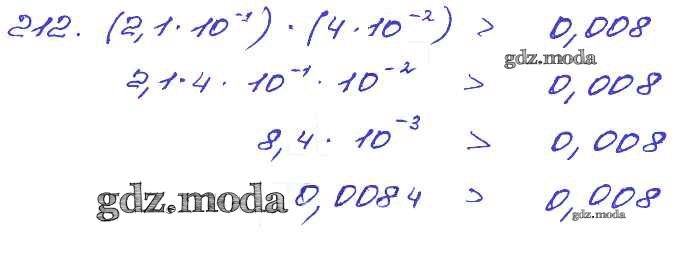 212. (2,1 · 10⁻¹) · (4 · 10⁻²) > 0,008
gdz.moda
2,1 · 4 · 10⁻¹ · 10⁻² > 0,008
8,4 · 10⁻³ > 0,008
gdz.moda 0,0084 > 0,008
gdz.moda